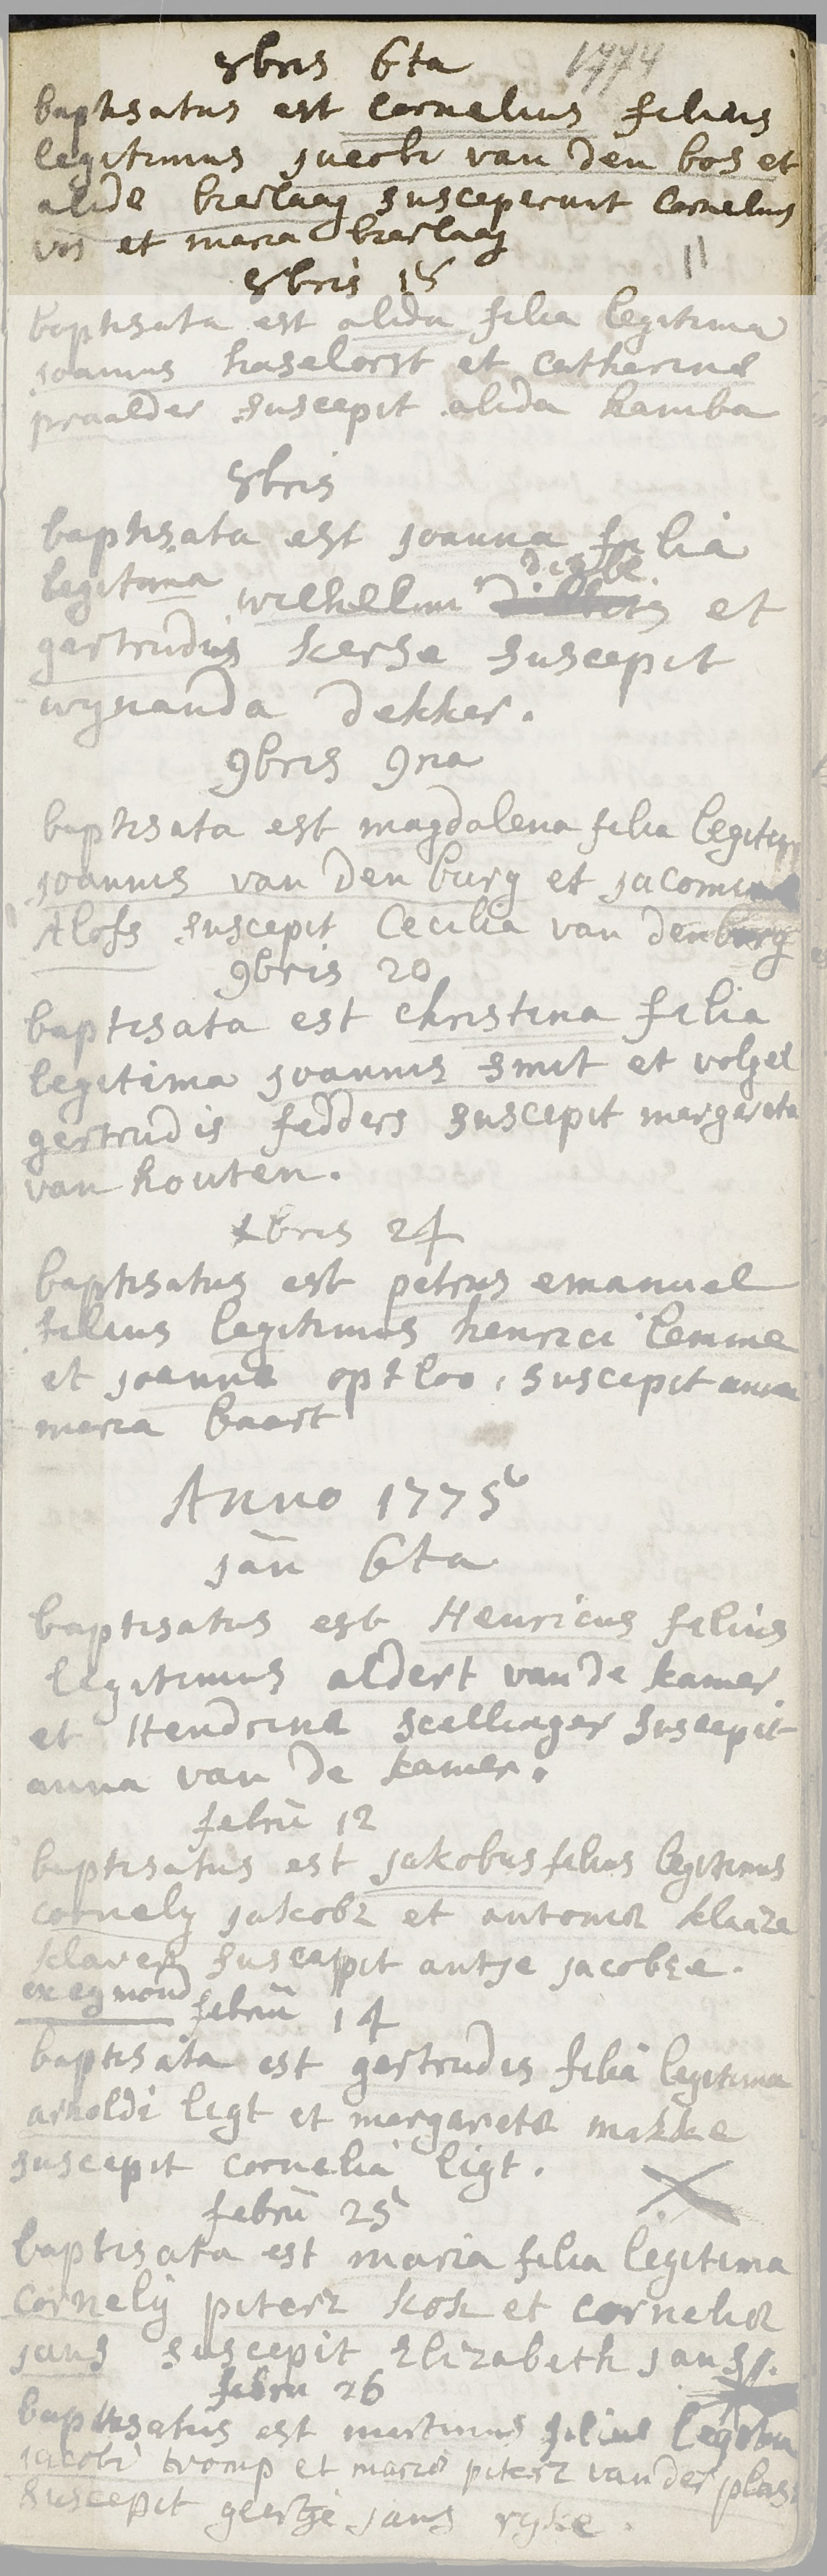 8bris 6ta 1774
baptisatus est Cornelius filius
legitimus jacobi van den bos et
alidæ bierlaag susceperunt Cornelius
vis et maria bierlaag
11
8bris 18
baptisata est alida filia legitima
joannis haselorst et Catharinæ
praalder suscepit alida kamba
8bris
baptisata est joanna filia
legitima wilhelmi et
gertrudis kerse suscepit
wynanda dekker.
9bris 9na
baptisata est magdalena filia legitim
joannis van den burg et jacominæ
Alofs suscepit Cecilia van den burg
9bris 20
baptisata est christina filia
legitima joannis smit et volgel
gertrudis fedders suscepit margareta
van houten.
xbris 24
baptisatus est petrus emanuel
filius legitimus henrici lemme
et joannæ optloo, suscepit anna
maria baart
Anno 1775
jan 6ta
baptisatus est Henricus filius
legitimus aldert van de kamer
et Hendrina scellinger suscepit
anna van de kamer.
febru 12
baptisatus est jakobus filius legitimus
cornely jakobz et antoniæ klaaze
klaver suscepit antje jacobze.
ex egmond
febru 14
baptisata est gertrudis filia legitima
arnoldi ligt et margaretæ makke
suscepit cornelia ligt.
febru 25
baptisata est maria filia legitima
Cornely piterz kok et corneliæ
jans suscepit Elizabeth jans
febru 26
baptisatus est martinus filius legitim
jacobi tromp et mariæ piterz van der plas
suscepit geertje jans ryke.